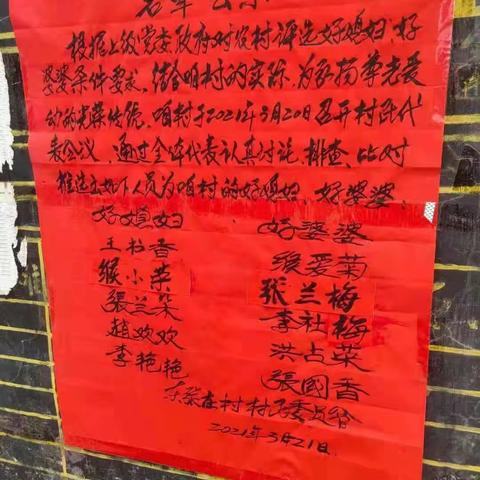 名单公示
根据上级党委政府对农村评选好媳妇、好
婆婆条件要求,结合咱村的实际,为弘扬孝老爱
幼的光荣传统,咱村于2021年3月20日召开村民代
表会议,通过全体代表认真讨论,排查、比对
推选出如下人员为咱村的好媳妇、好婆婆、
好媳妇 好婆婆
王书香 侯爱菊
侯小荣 张兰梅
張兰朵 李社梅
赵欢欢 洪占菜
李艳艳 張國香
村村民委员会
2021年3月21日